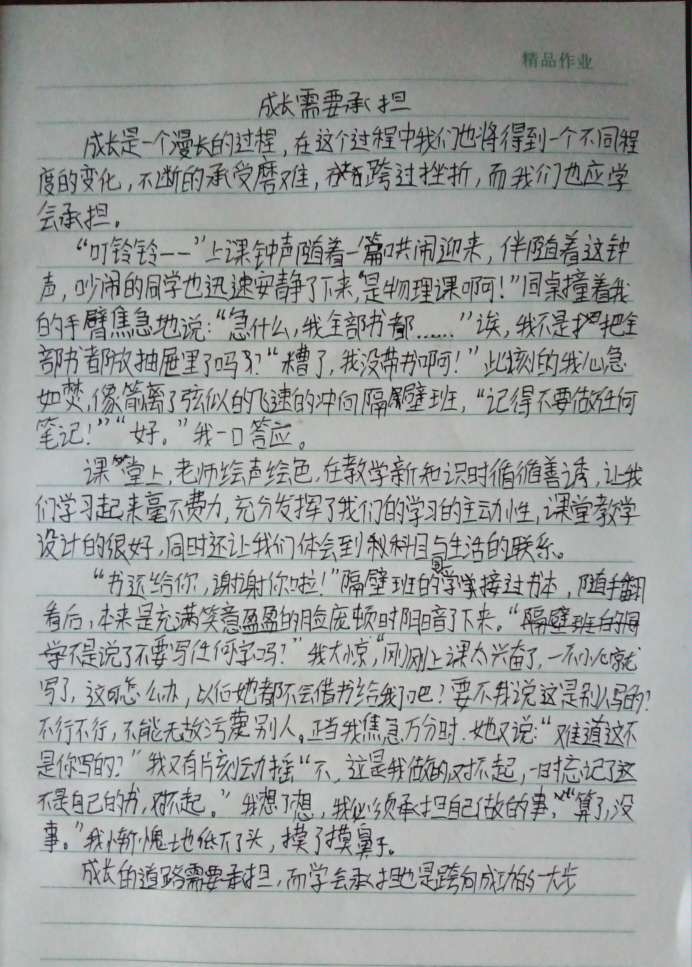 精品作业
成长需要承担
成长是一个漫长的过程，在这个过程中我们也将得到一个不同程
度的变化，不断的承受磨难，跨过挫折，而我们也应学
会承担。
“叮铃铃——”上课钟声随着一篇哄闹迎来，伴随着这钟
声，吵闹的同学也迅速安静了下来，“是物理课啊！”同桌撞着我
的手臂焦急地说：“急什么，我全部书都……”诶，我不是把全
部书都放抽屉里了吗？“糟了，我没带书啊！”此刻的我心急
如焚，像箭离了弦似的飞速的冲向隔壁班，“记得不要做任何
笔记！”“好。”我一口答应。
课堂上，老师绘声绘色，在教学新知识时循循善诱，让我
们学习起来毫不费力，充分发挥了我们的学习的主动性，课堂教学
设计的很好，同时还让我们体会到科目与生活的联系。
“书还给你，谢谢你啦！”隔壁班的同学接过书本，随手翻
看后，本来是充满笑意盈盈的脸庞顿时阴暗了下来。“
不是说了不要写任何字吗？”我大惊，“刚刚上课太兴奋了，一不小心就
写了，这可怎么办，以后她都不会借书给我了吧？要不我说这是别人写的？
不行不行，不能无故污蔑别人。正当我焦急万分时，她又说：“难道这不
是你写的？”我又有片刻动摇“不，这是我做的，对不起，一时忘记了这
不是自己的书，对不起。”我想了想，我必须承担自己做的事，“算了，没
事。”我惭愧地低下了头，摸了摸鼻子。
成长的道路需要承担，而学会承担也是跨向成功的一大步